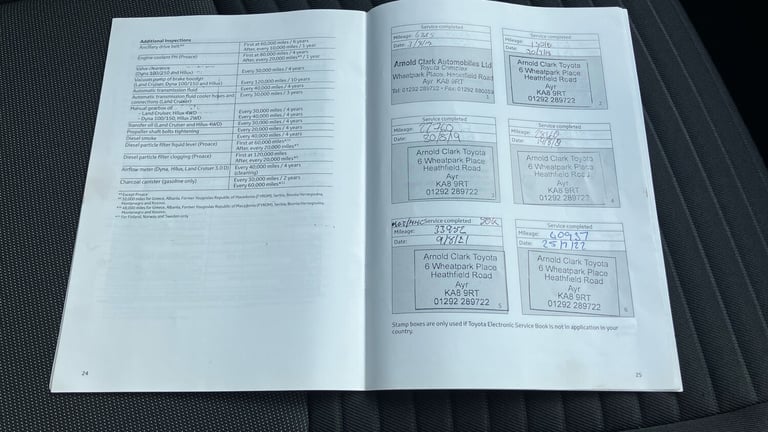 Additional Inspections
Ancillary drive belt
First at 60,000 miles / 6 years
After, every 10,000 miles / 1 year
Engine coolant PH (Proace)
First at 80,000 miles / 4 years
After, every 20,000 miles / 1 year
Valve clearance
(Dyna 100/150 and Hilux)
Every 30,000 miles / 4 years
Vacuum pump of brake booster
(Land Cruiser, Dyna 100/150 and Hilux)
Every 120,000 miles / 10 years
Automatic transmission fluid
Every 40,000 miles / 4 years
Automatic transmission fluid cooler hoses and
connections (Land Cruiser)
Every 30,000 miles / 3 years
Manual gearbox oil
- Land Cruiser, Hilux 4WD
- Dyna 100/150, Hilux 2WD
Every 30,000 miles / 4 years
Every 40,000 miles / 4 years
Transfer oil (Land Cruiser and Hilux 4WD)
Every 30,000 miles / 4 years
Propeller shaft bolts tightening
Every 20,000 miles / 4 years
Diesel smoke
Every 40,000 miles / 4 years
Diesel particle filter liquid level (Proace)
First at 60,000 miles
After, every 20,000 miles
Diesel particle filter clogging (Proace)
First at 120,000 miles
After, every 20,000 miles
Airflow meter (Dyna, Hilux, Land Cruiser 3.0 D)
Every 40,000 miles / 4 years
(cleaning)
Charcoal canister (gasoline only)
Every 30,000 miles / 2 years
Every 60,000 miles
Except Proace
For Finland, Norway and Sweden only
24
Service completed
Mileage:
Date:
Arnold Clark Automobiles Ltd
Toyota Complex
Wheatpark Place, Heathfield Road
Ayr KA8 9RT
1
Service completed
Mileage:
Date:
Arnold Clark Toyota
6 Wheatpark Place
Heathfield Road
Ayr
KA8 9RT
01292 289722
2
Service completed
Mileage:
Date: 30/5/19
Arnold Clark Toyota
6 Wheatpark Place
Heathfield Road
Ayr
KA8 9RT
01292 289722
3
Service completed
Mileage:
Date:
Arnold Clark Toyota
6 Wheatpark Place
Heathfield Road
Ayr
KA8 9RT
01292 289722
4
Service completed
Mileage: 33952
Date: 9/8/21
Arnold Clark Toyota
6 Wheatpark Place
Heathfield Road
Ayr
KA8 9RT
01292 289722
5
Service completed
Mileage: 40957
Date: 25/7/22
Arnold Clark Toyota
6 Wheatpark Place
Heathfield Road
Ayr
KA8 9RT
01292 289722
6
Stamp boxes are only used if Toyota Electronic Service Book is not in application in your
country.
25